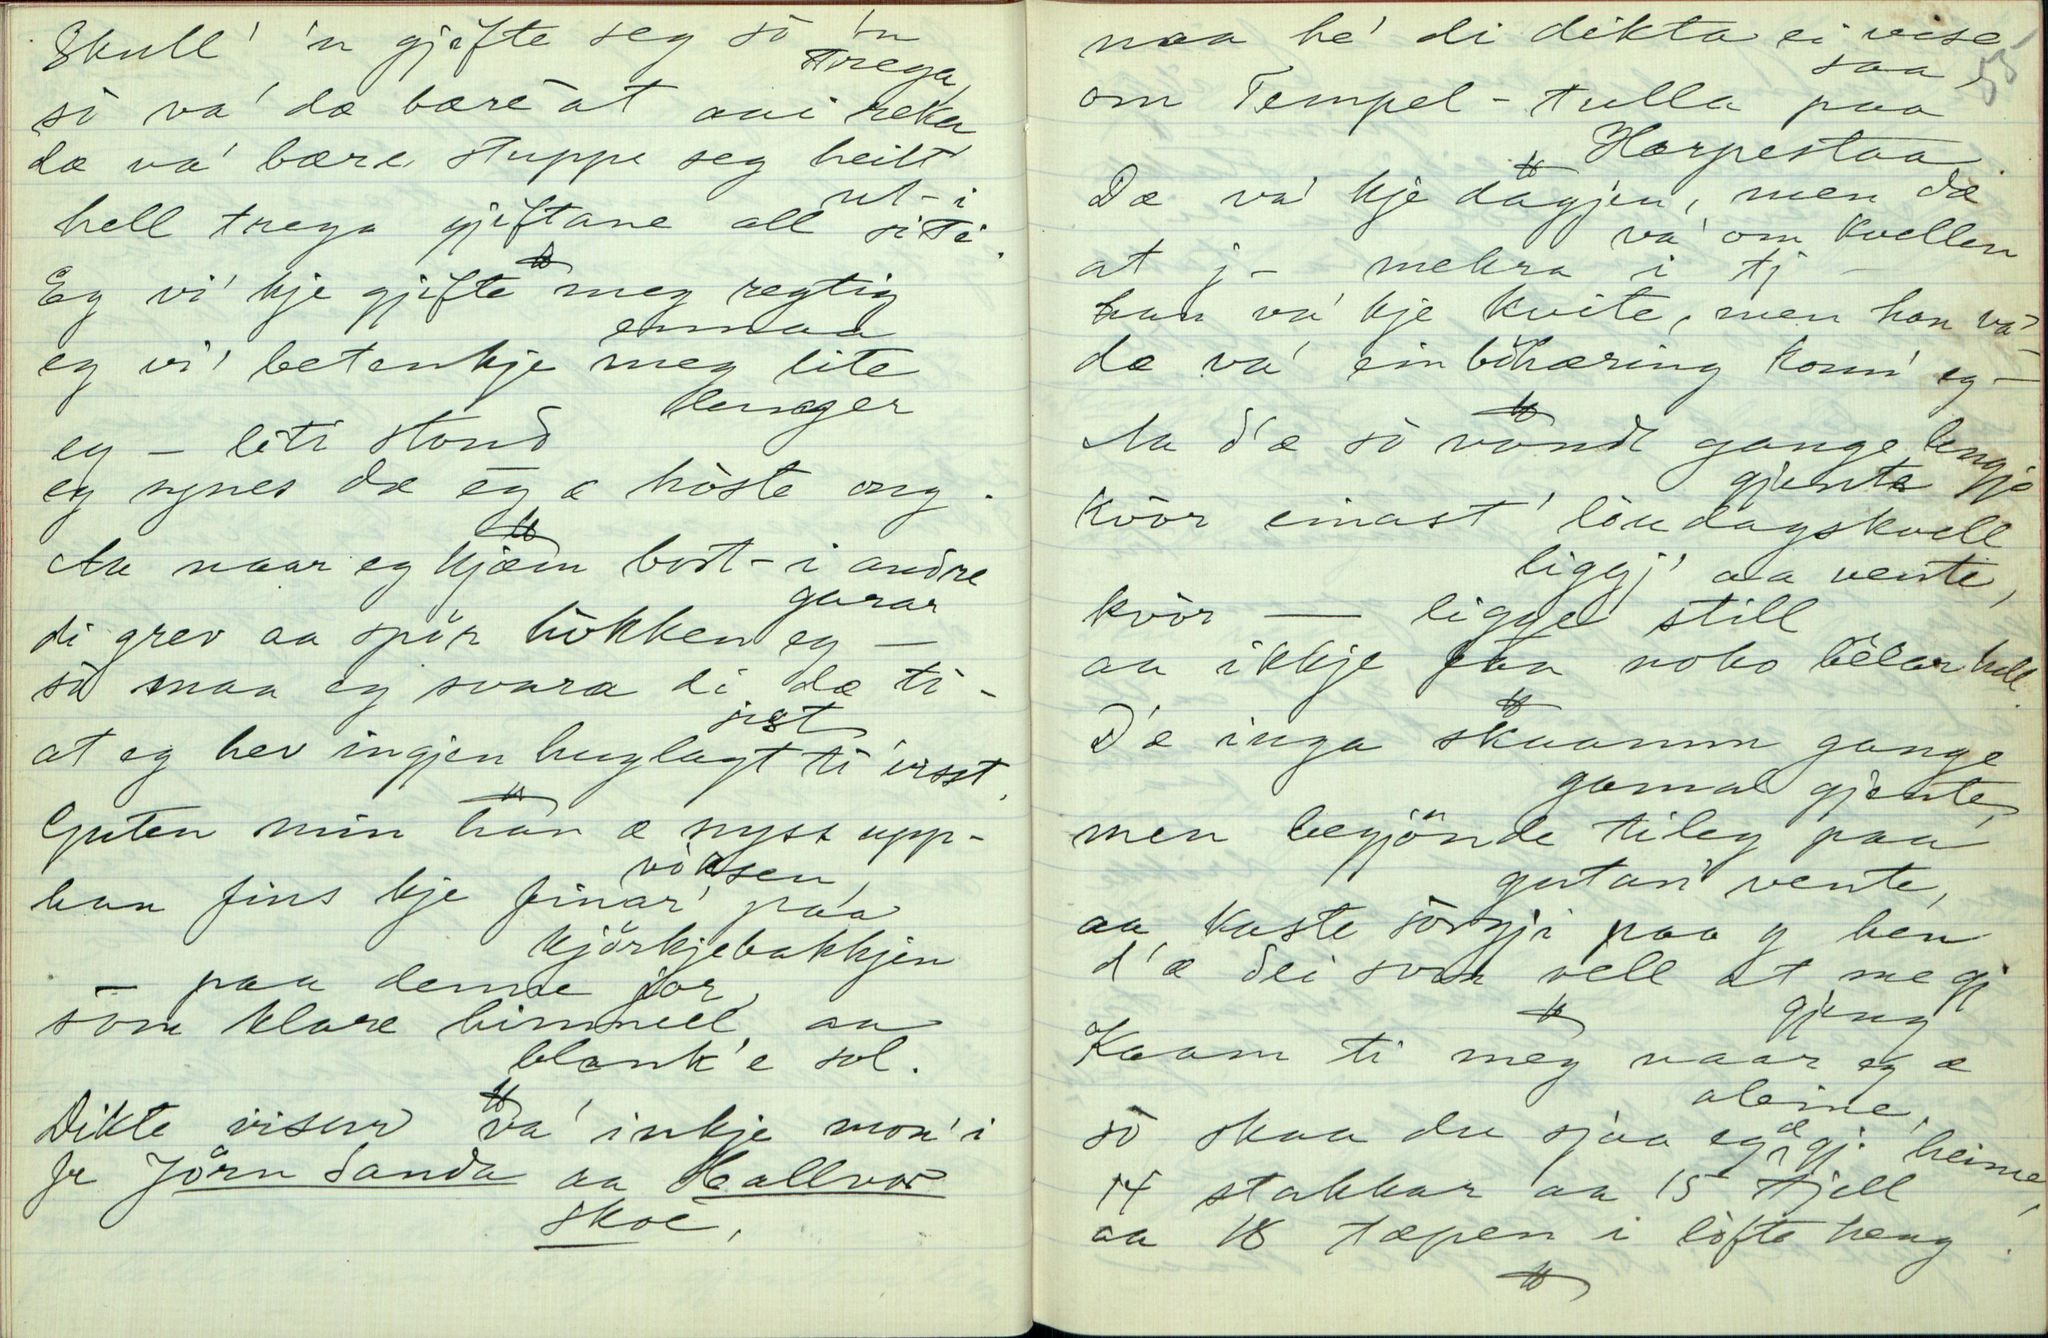 Skull' 'n gjifte seg so 'n
trega,
so va' dæ bære at aai reka
dæ va' bære stuppe seg heilt
ut-i
hell trega gjiftane all si ti.
Eg vi' kje gjifte meg regtig
ennaa
eg vi' betenkje meg lite
lenger
eg – liti stond
eg synes dæ eg æ höste ong.
Aa naar eg kjæm bort-i andre
garar
di grev aa spör hökken eg —
so maa eg svara di dæ ti-
just
at eg hev ingjen huglagt ti' visst.
Guten min han æ nyss upp-
vöksen,
han fins kje finar' paa
kjörkjebakkjen
– paa denne jor,
som klare himmeel aa
blank'e sol.
Dikte visur va' inkje mon' i
fe Jörn Sanda aa Hallvor
Skoe.
naa he' di dikta ei vise
saa,
55
om Tempel-tulla paa
Hærpestaa
Dæ va' kje dagjen, men dæ
va' om kvellen
at j– mekra i tj –
han va' kje kvite, men han va' –
dæ va' ein böhæring konn' eg –
Aa d'æ so vondt gange lengje
gjente
kvör einast' löudagskvell
liggj' aa vente,
kvör — ligge still
aa ikkje faa noko bélar hell.
D'æ inga skaamm gange
gamal gjente,
men begjönde tileg paa
gutan' vente,
aa kaste sörgji paa g hen
d'æ dei som vell at me gj
gjeng
Kaam ti meg naar eg æ
aleine,
so skaa du sjaa eg æ gj. heime,
14 stakkar aa 15 fjell
aa 18 tæpen i löfte heng.